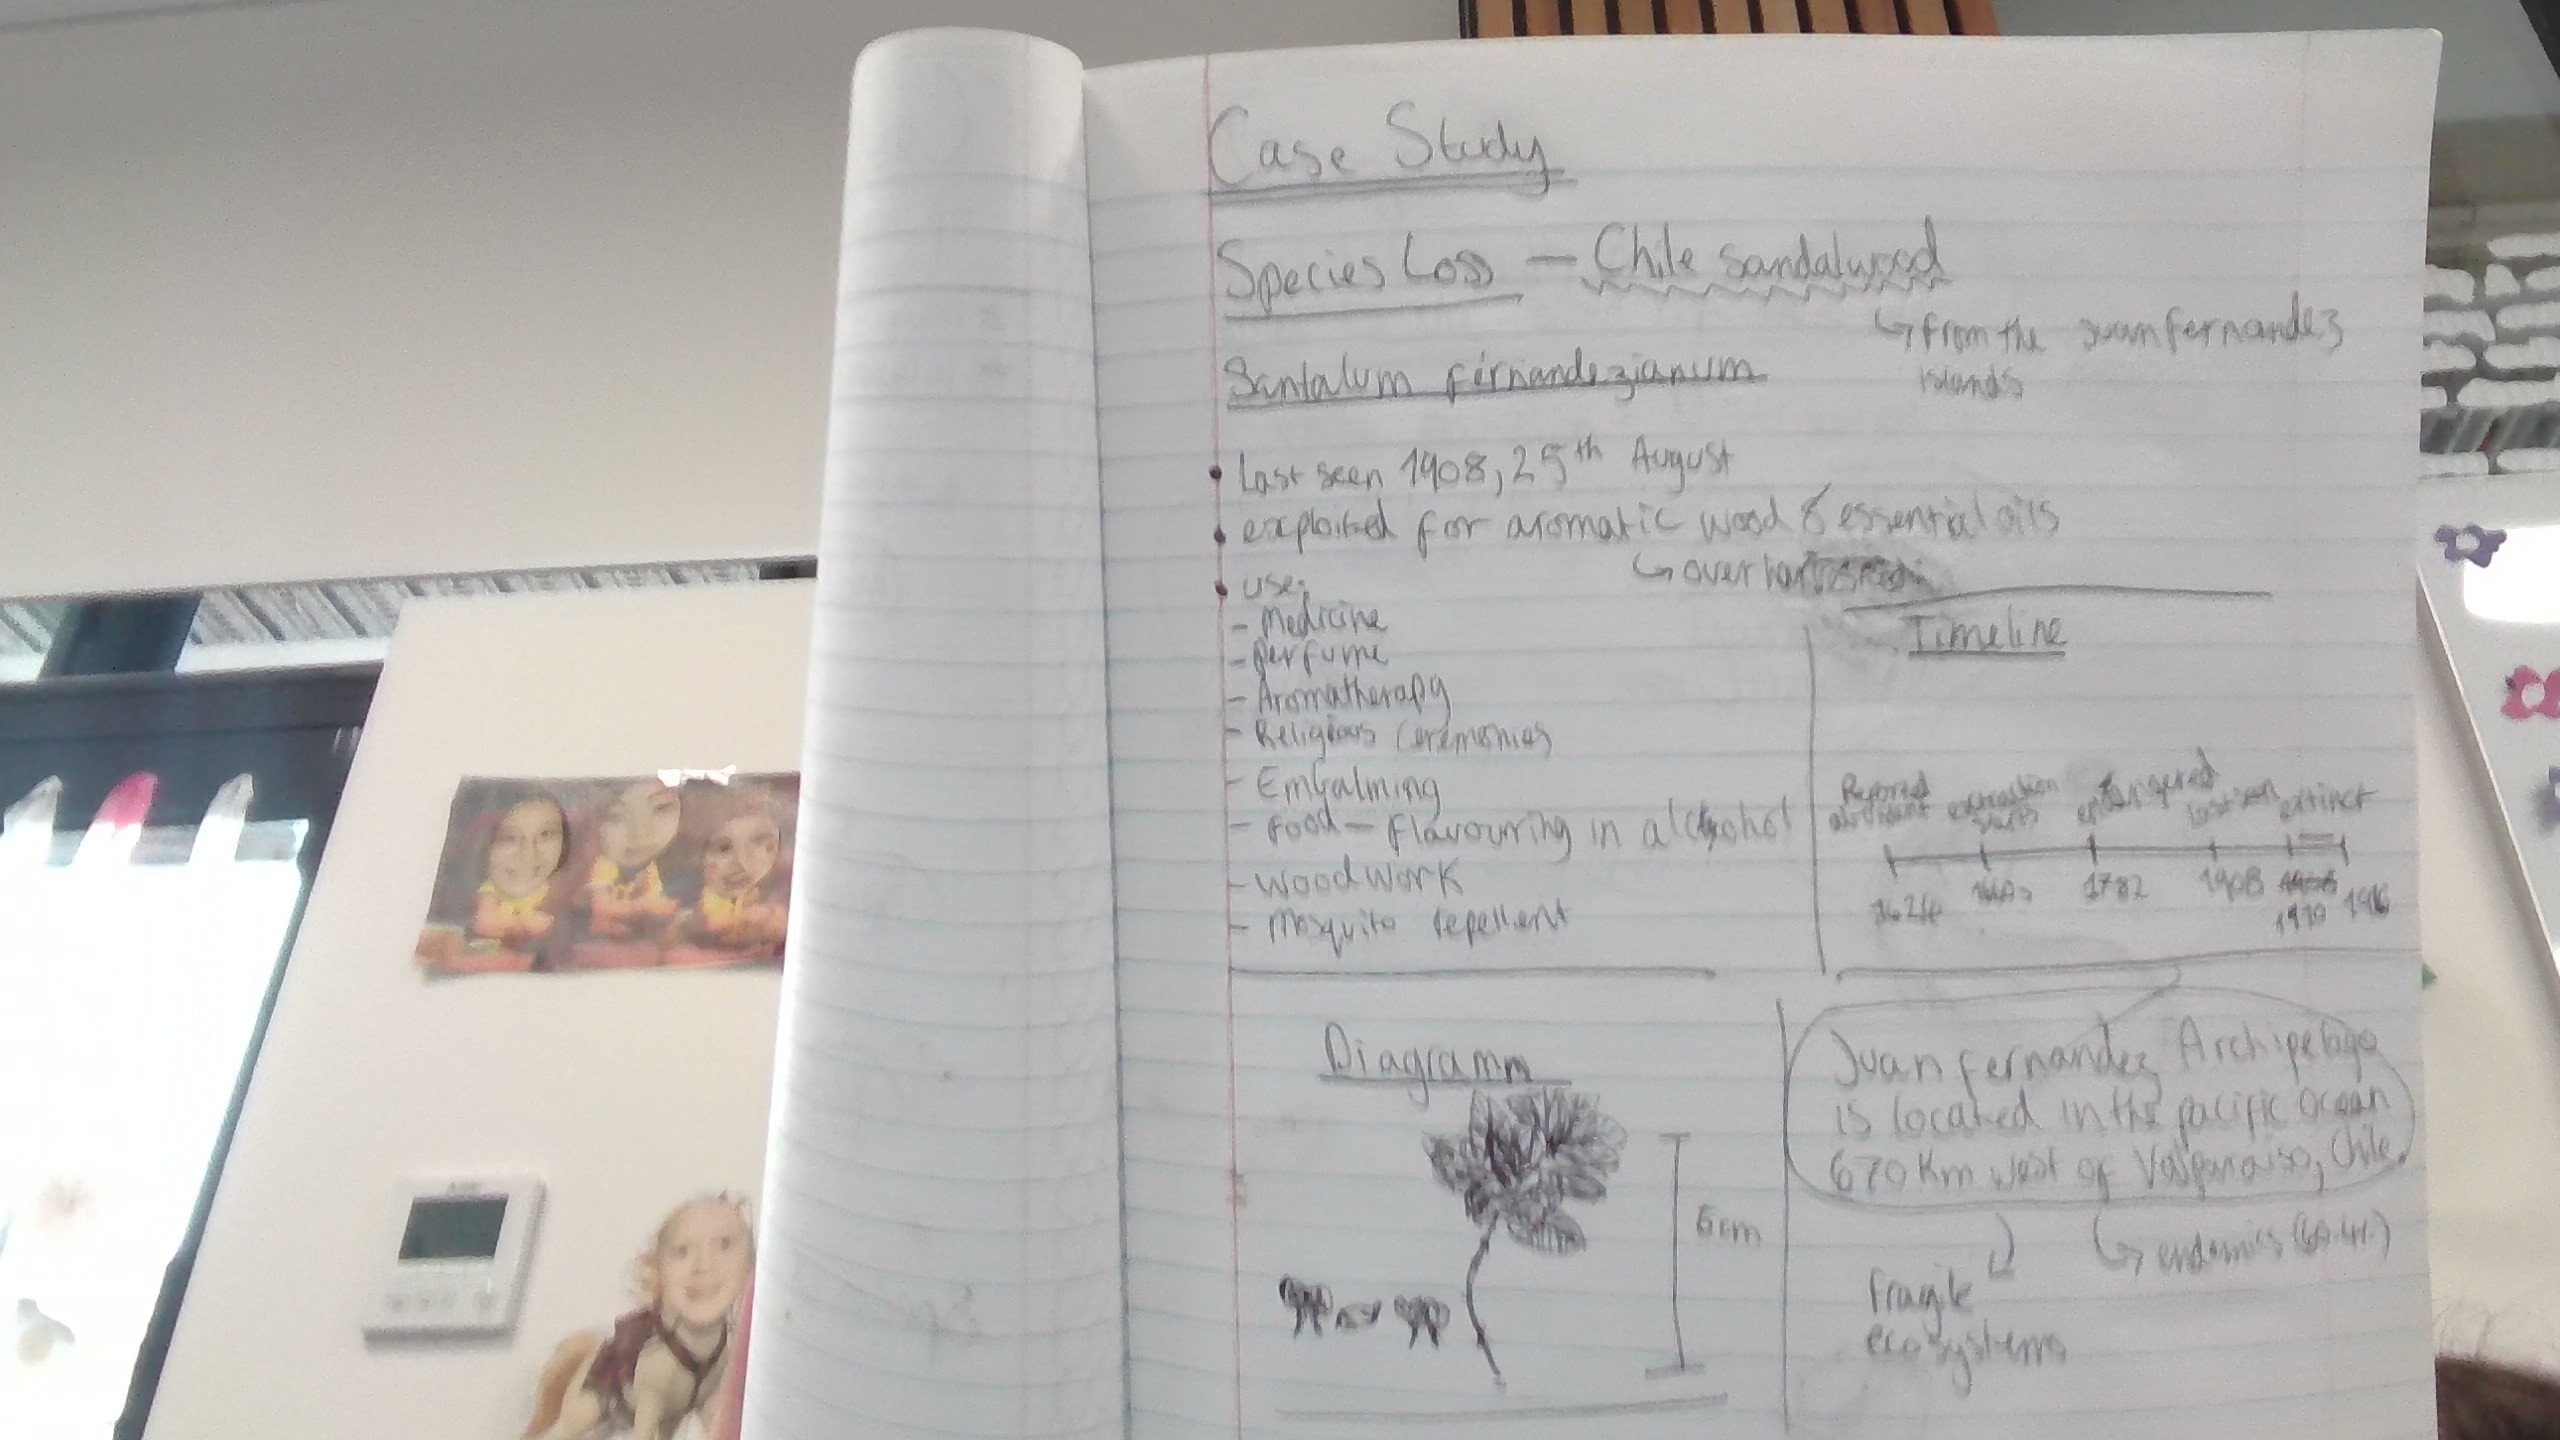 Case Study
Species Loss - Chile sandalwood
↳ from the Juan fernandez
islands
Santalum fernandezianum
• Last seen 1908, 25th August
• exploited for aromatic wood & essential oils
↳ over
• use;
- Medicine
- Perfume
- Aromatherapy
- Religious Ceremonies
- Embalming
- Food - flavouring in alcohol
- Woodwork
- Mosquito repellent
Timeline
Reported
abundant
extraction
starts
endangered
last seen
extinct
1624
1782
1908
1910
1916
Diagramm
6m
Juan fernandez Archipelago
is located in the pacific ocean
670 Km west of Valparaiso, Chile.
↳ endemics
fragile
ecosystems